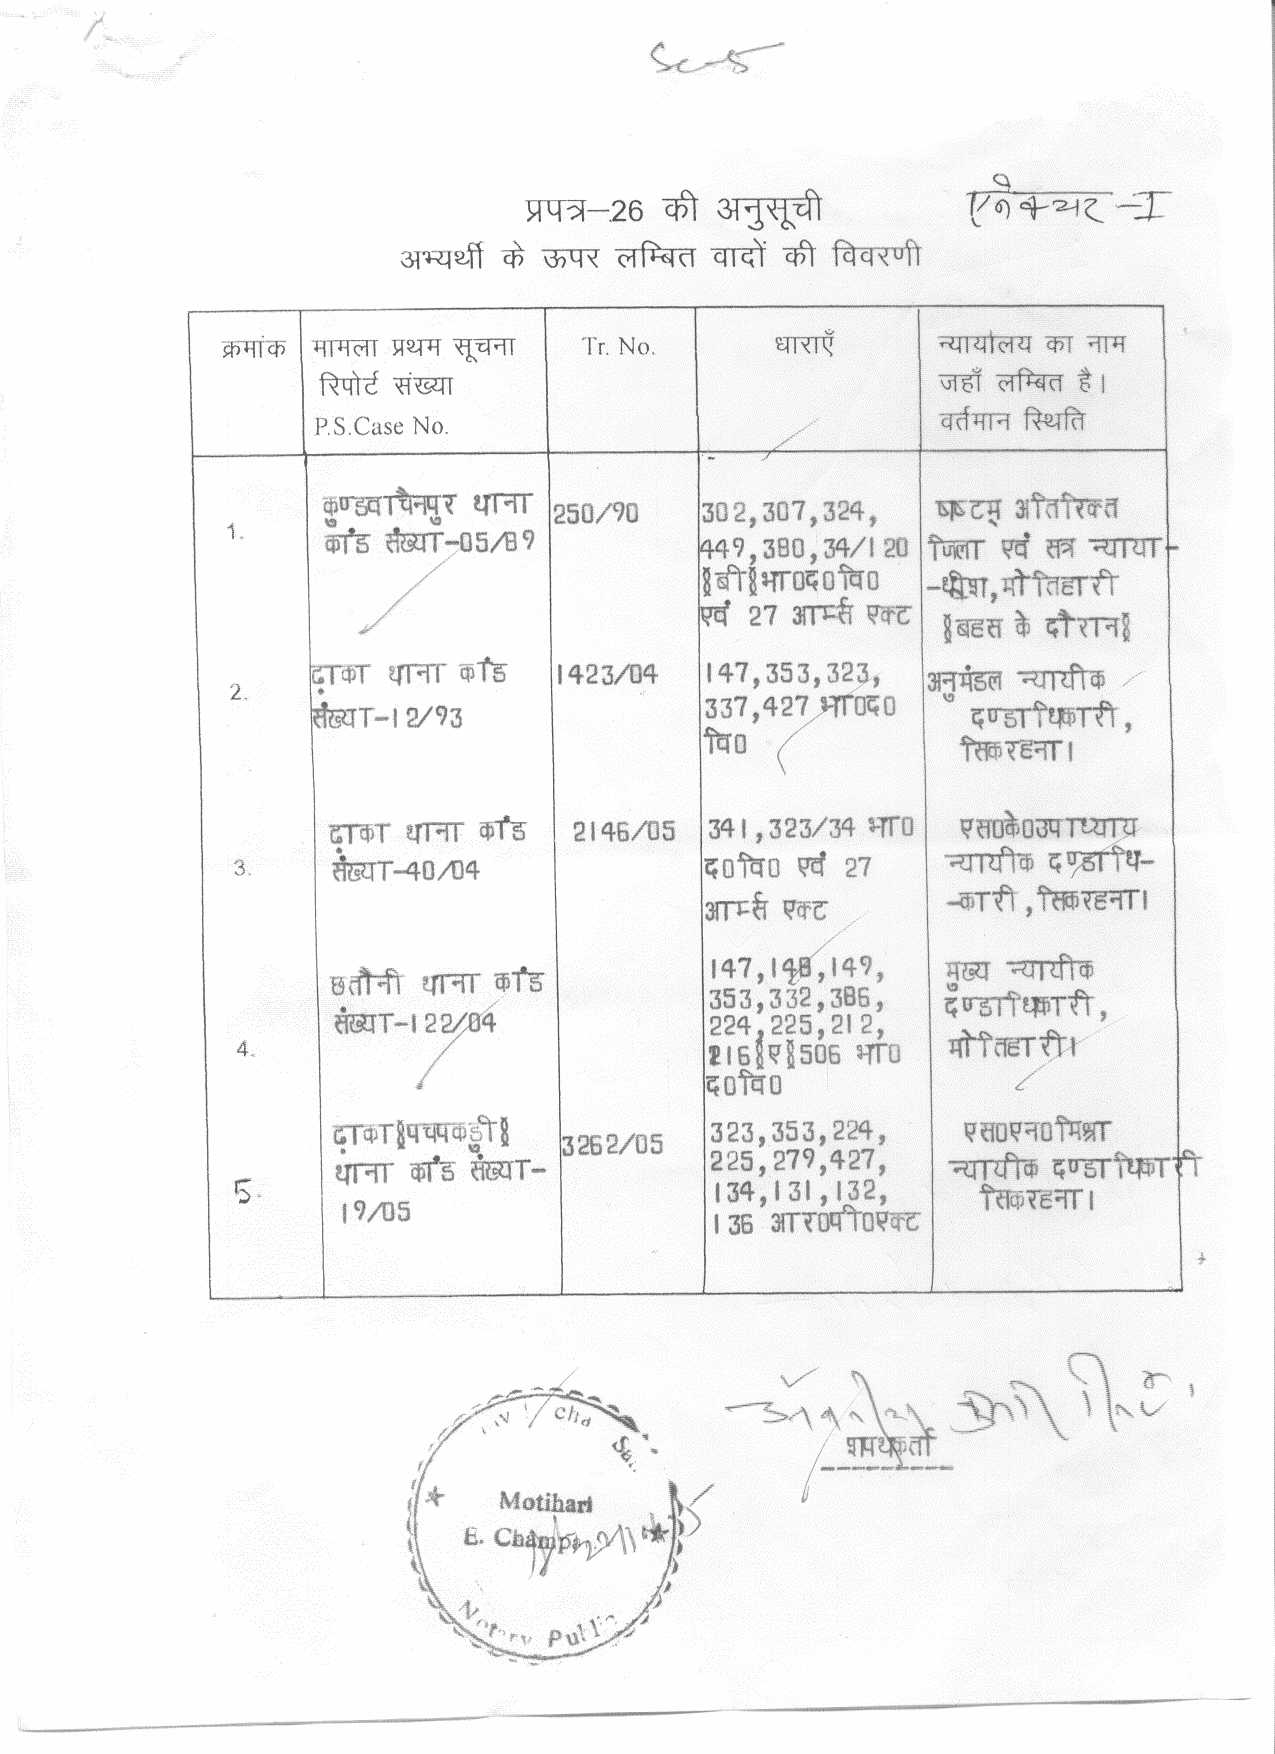 प्रपत्र–26 की अनुसूची
एनेक्चर -I
अभ्यर्थी के ऊपर लम्बित वादों की विवरणी
क्रमांक मामला प्रथम सूचना रिपोर्ट संख्या P.S.Case No. Tr. No. धाराएँ न्यायालय का नाम जहाँ लम्बित है। वर्तमान स्थिति
1. कुण्डवाचैनपुर थाना
कांड संख्या-05/89
250/90
302,307,324,
449,380,34/120
§बी§भा0द0वि0
एवं 27 आर्म्स एक्ट
षष्टम् अतिरिक्त
जिला एवं सत्र न्याया-
-धीश,मोतिहारी
§बहस के दौरान§
2. ढ़ाका थाना कांड
संख्या-12/93
1423/04
147,353,323,
337,427 भा0द0
वि0
अनुमंडल न्यायीक
दण्डाधिकारी,
सिकरहना।
3. ढ़ाका थाना कांड
संख्या-40/04
2146/05
341,323/34 भा0
द0वि0 एवं 27
आर्म्स एक्ट
एस0के0उपाध्याय
न्यायीक दण्डाधि-
-कारी,सिकरहना।
4. छतौनी थाना कांड
संख्या-122/04
147,148,149,
353,332,386,
224,225,212,
216§ए§506 भा0
द0वि0
मुख्य न्यायीक
दण्डाधिकारी,
मोतिहारी।
5. ढ़ाका§पचपकड़ी§
थाना कांड संख्या-
19/05
3262/05
323,353,224,
225,279,427,
134,131,132,
136 आर0पी0एक्ट
एस0एन0मिश्रा
न्यायीक दण्डाधिकारी
सिकरहना।
शपथकर्ता
Motihari
E. Champa
Notary Public